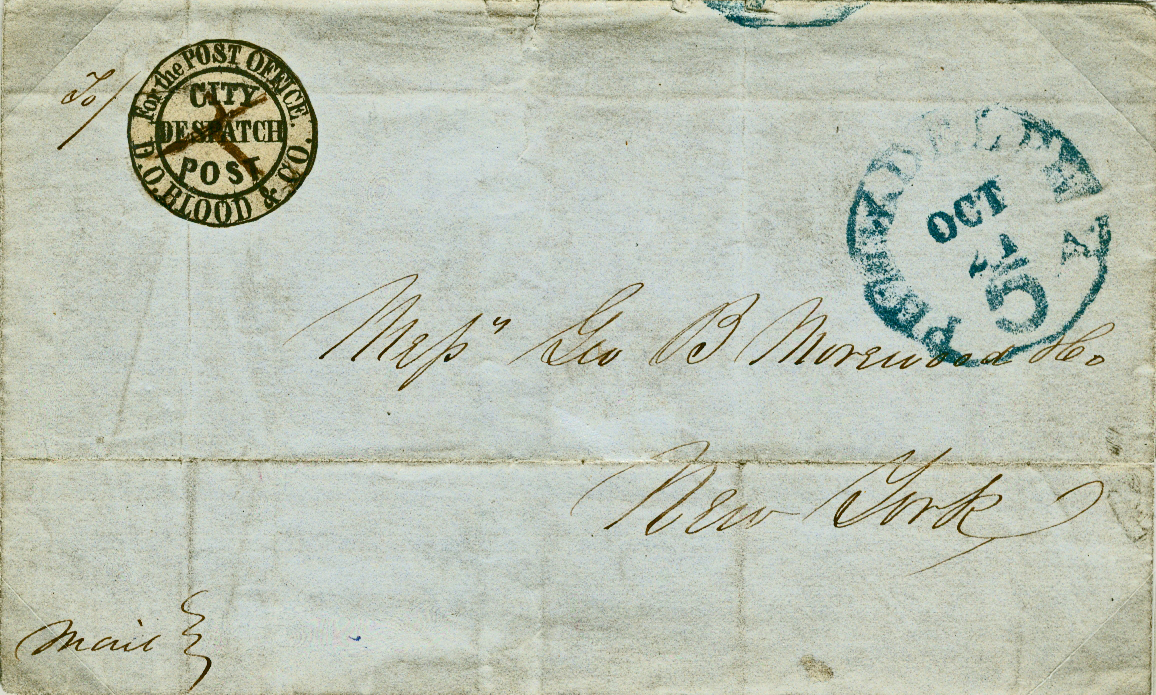 To/
For the POST OFFICE.
CITY
DESPATCH
POST
D.O. BLOOD & CO.
PHILADELPHIA
OCT
21
5
Messʳˢ Geo B Morewood & Co
New York
Mail